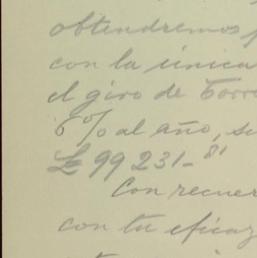 obtendremos p
con la única
el giro de Torre
6% al año, su
£ 99 231-81
Con recuer
con tu eficaz